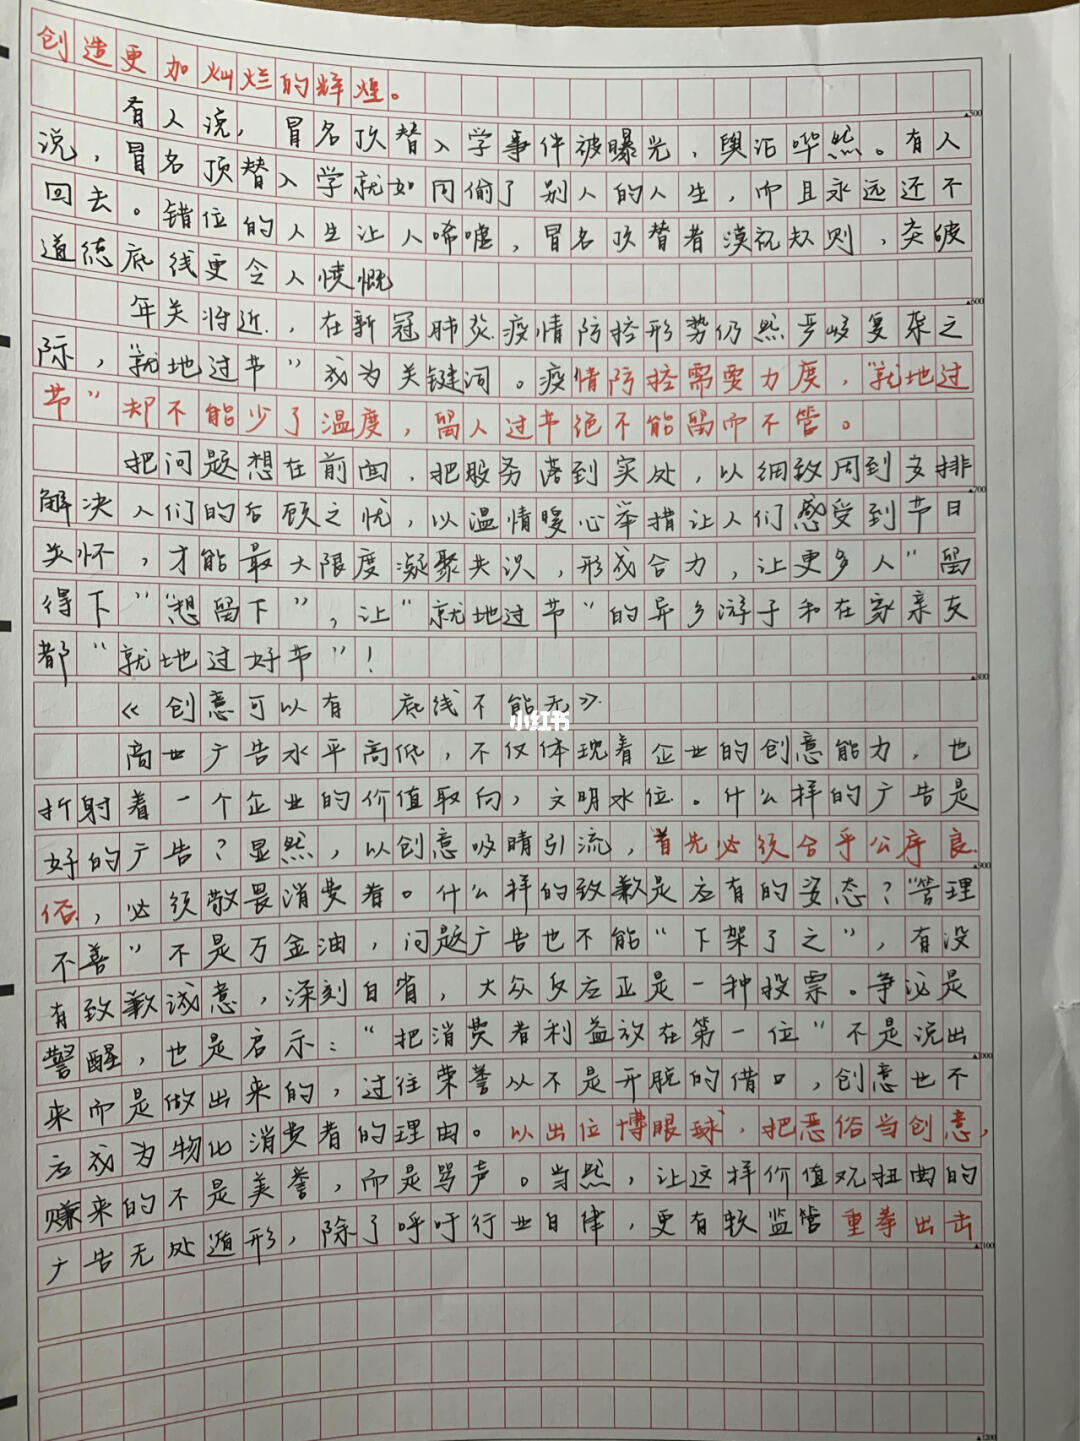 创造更加灿烂的辉煌。
有人说，冒名顶替入学事件被曝光，舆论哗然。有人
说，冒名顶替入学就如同偷了别人的人生，而且永远还不
回去。错位的人生让人唏嘘，冒名顶替者漠视规则，突破
道德底线更令人愤慨
年关将近，在新冠肺炎疫情防控形势仍然严峻复杂之
际，“就地过节”成为关键词。疫情防控需要力度，“就地过
节”却不能少了温度，留人过节绝不能留而不管。
把问题想在前面，把服务落到实处，以细致周到安排
解决人们的后顾之忧，以温情暖心举措让人们感受到节日
关怀，才能最大限度凝聚共识，形成合力，让更多人“留
得下”“想留下”，让“就地过节”的异乡游子和在家亲友
都“就地过好节”！
《创意可以有 底线不能无》
商业广告水平高低，不仅体现着企业的创意能力，也
折射着一个企业的价值取向，文明水位。什么样的广告是
好的广告？显然，以创意吸睛引流，首先必须合乎公序良
俗，必须敬畏消费者。什么样的致歉是应有的姿态？“管理
不善”不是万金油，问题广告也不能“下架了之”，有没
有致歉诚意，深刻自省，大众反应正是一种投票。争议是
警醒，也是启示：“把消费者利益放在第一位”不是说出
来而是做出来的，过往荣誉从不是开脱的借口，创意也不
应成为物化消费者的理由。以出位博眼球，把恶俗当创意，
赚来的不是美誉，而是骂声。当然，让这样价值观扭曲的
广告无处遁形，除了呼吁行业自律，更有赖监管重拳出击
小红书
500
600
700
800
900
1000
1100
1200